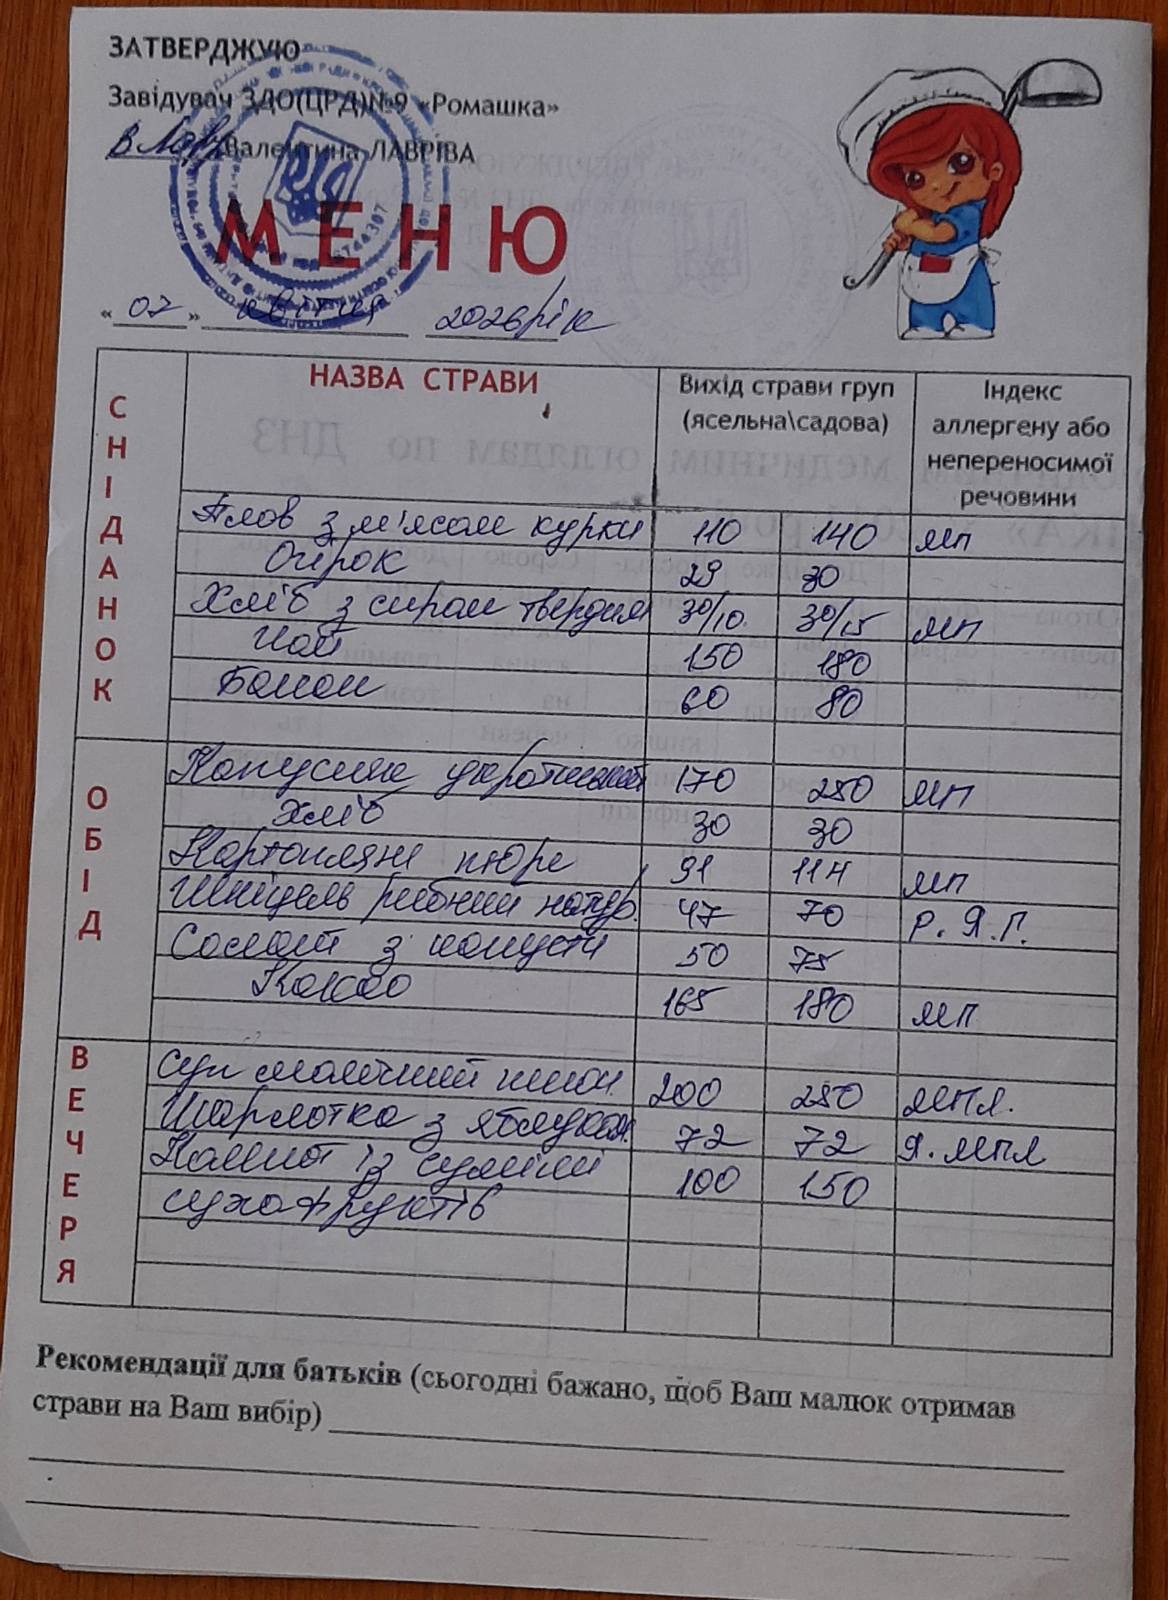 ЗАТВЕРДЖУЮ
Завідувач ЗДО(ЦРД)№9 «Ромашка»
Валентина ЛАВРІВА
МЕНЮ
«07» квітня 2026 рік
СНІДАНОК
НАЗВА СТРАВИ Вихід страви груп (ясельна\садова) Індекс аллергену або непереносимої речовини
Плов з м'ясом курки 110 140 МП
Огірок 29 30
Хліб з сиром твердим 30/10 30/15 МП
Чай 150 180
Банан 60 80
ОБІД
Капусняк український 170 250 МП
Хліб 30 30
Картопляне пюре 91 114 МП
Шніцель рибний натур. 47 70 Р. Я. Г.
Салат з капусти 50 75
Какао 165 180 МП
ВЕЧЕРЯ
Суп молочний 200 250 МПЛ.
Шарлотка з яблуками 72 72 Я. МПЛ
Компот із суміші 100 150
сухофруктів
Рекомендації для батьків (сьогодні бажано, щоб Ваш малюк отримав
страви на Ваш вибір)